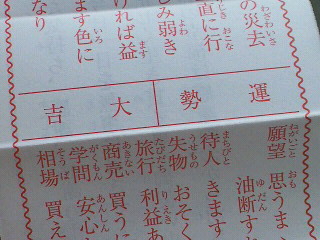 の災去
直に行
しみ弱き
ければ益
ます色に
なり
運勢 大吉
願望 思うま
油断す
待人 きます
失物 おそく
旅行 利益あ
商売 買うに
学問 安心
相場 買え